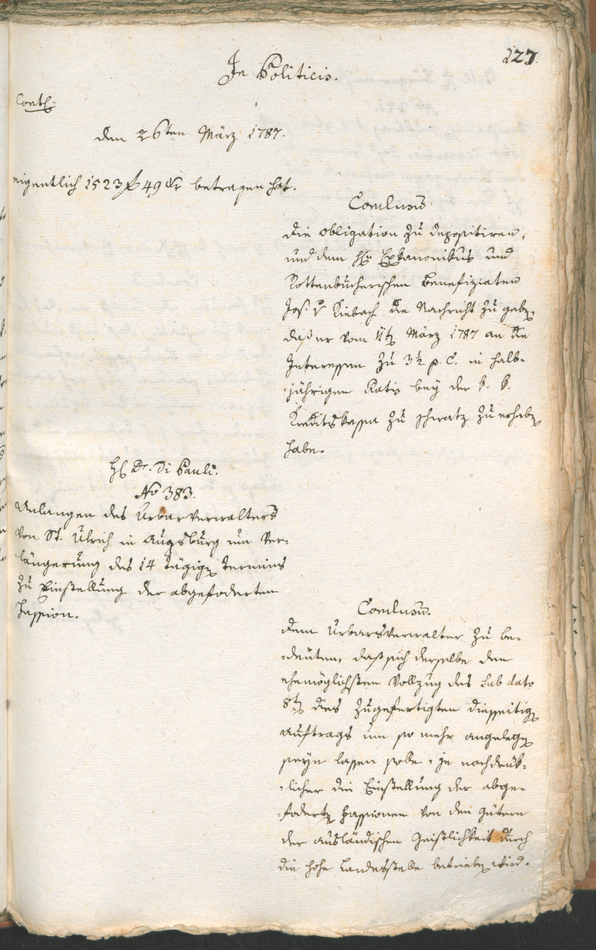 127.
In Politicis.
Conth:
den 26ten März 1787.
eigentlich 1523 f 49 kr betragen hat.
Conclusum.
die Obligation zu depositiren,
und dem Hn Exkanonikus und
Rottenbucherischen Benefiziaten
Jos: v die Nachricht zu geben,
daß er vom März 1787 an die
Interessen zu 3½ p. C. in halb-
jährigen Ratis bey der k. k.
Kreditskassa zu Schwatz zu erheben
habe.
H. Dr. Di Pauli.
No 383.
Anlangen des Urbarverwalters
von St. Ulrich in Augsburg um Ver-
längerung des 14 tägigen Termins
zu Einstellung der abgeforderten
Fassion.
Conclusum.
dem Urbarsverwalter zu be-
deuten, daß sich derselbe den
ehemöglichsten Vollzug des sub dato
8ten dies zugefertigten diesseitigen
Auftrags um so mehr angelegen
seyn lassen solle, je nachdrük-
licher die Einstellung der abge-
forderten Fassionen von den Gütern
der ausländischen Geistlichkeit durch
die hohe Landesstelle betrieben wird.